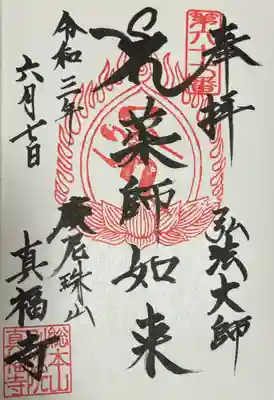 第六十七番
奉拝
弘法大師
薬師如来
摩尼珠山
真福寺
令和三年
六月七日
総本山
真福寺